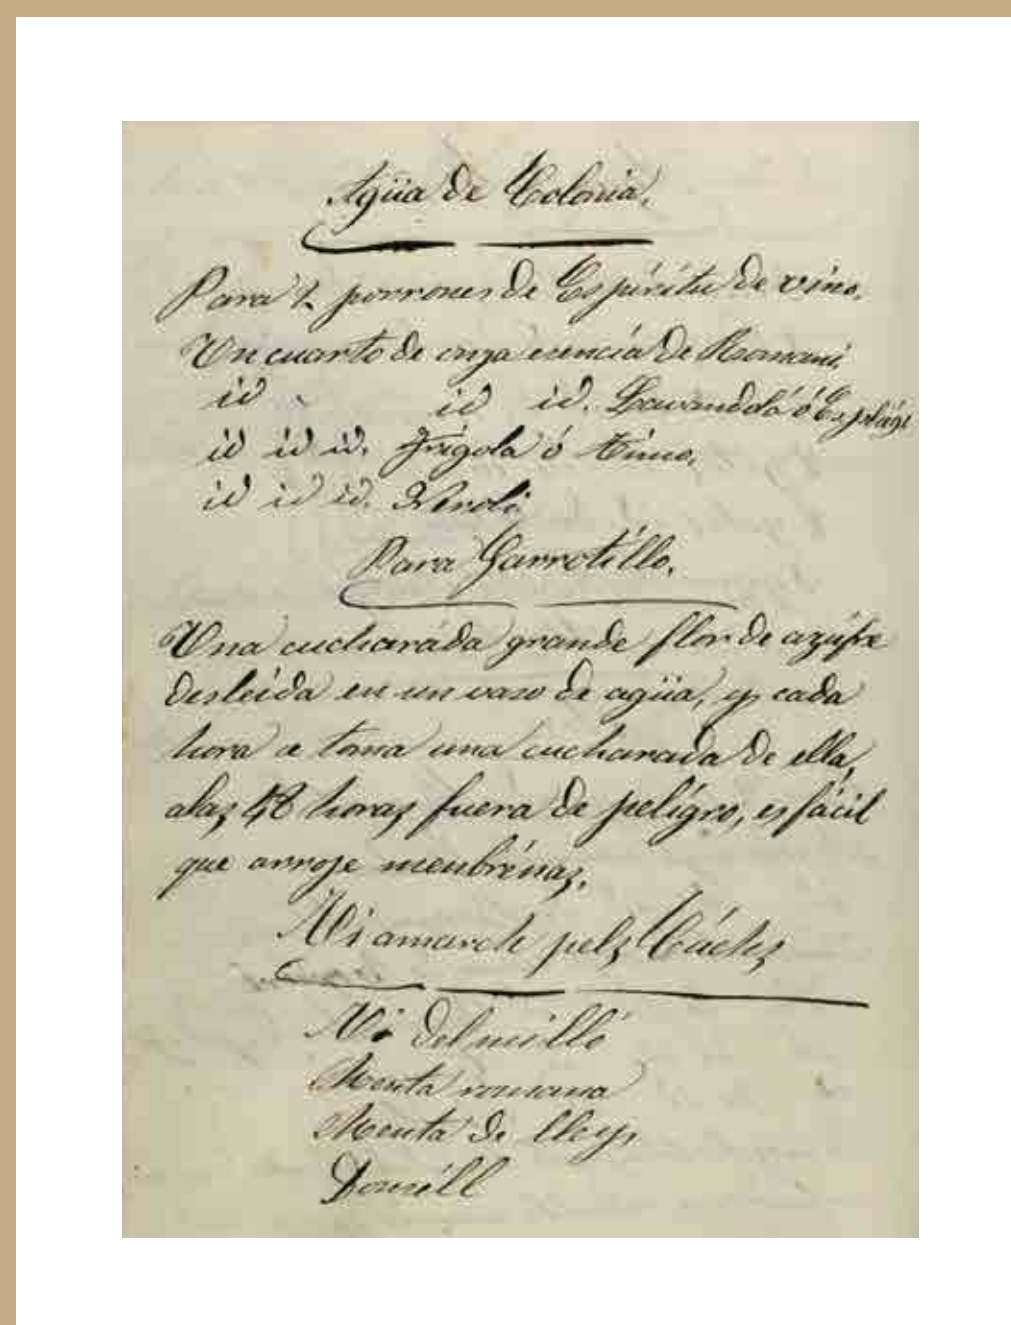 Agüa de Colonia.
Para 2 porrones de Espíritu de vino.
Un cuarto de onza esencia de Romaní
id id id. Lavandola ó Esplágol
id id id. Frígola ó Timo.
id id id. Neroli
Para Garrotíllo.
Una cucharáda grande flor de azúfre
desleída en un vaso de agüa, y cada
hora a toma una cucharada de ella,
alas 48 horas fuera de pelígro, es fácil
que arroje menbránas.
Vi amarch pels Cúchs
Vi del milló
Menta romana
Menta de lleys
Donsell